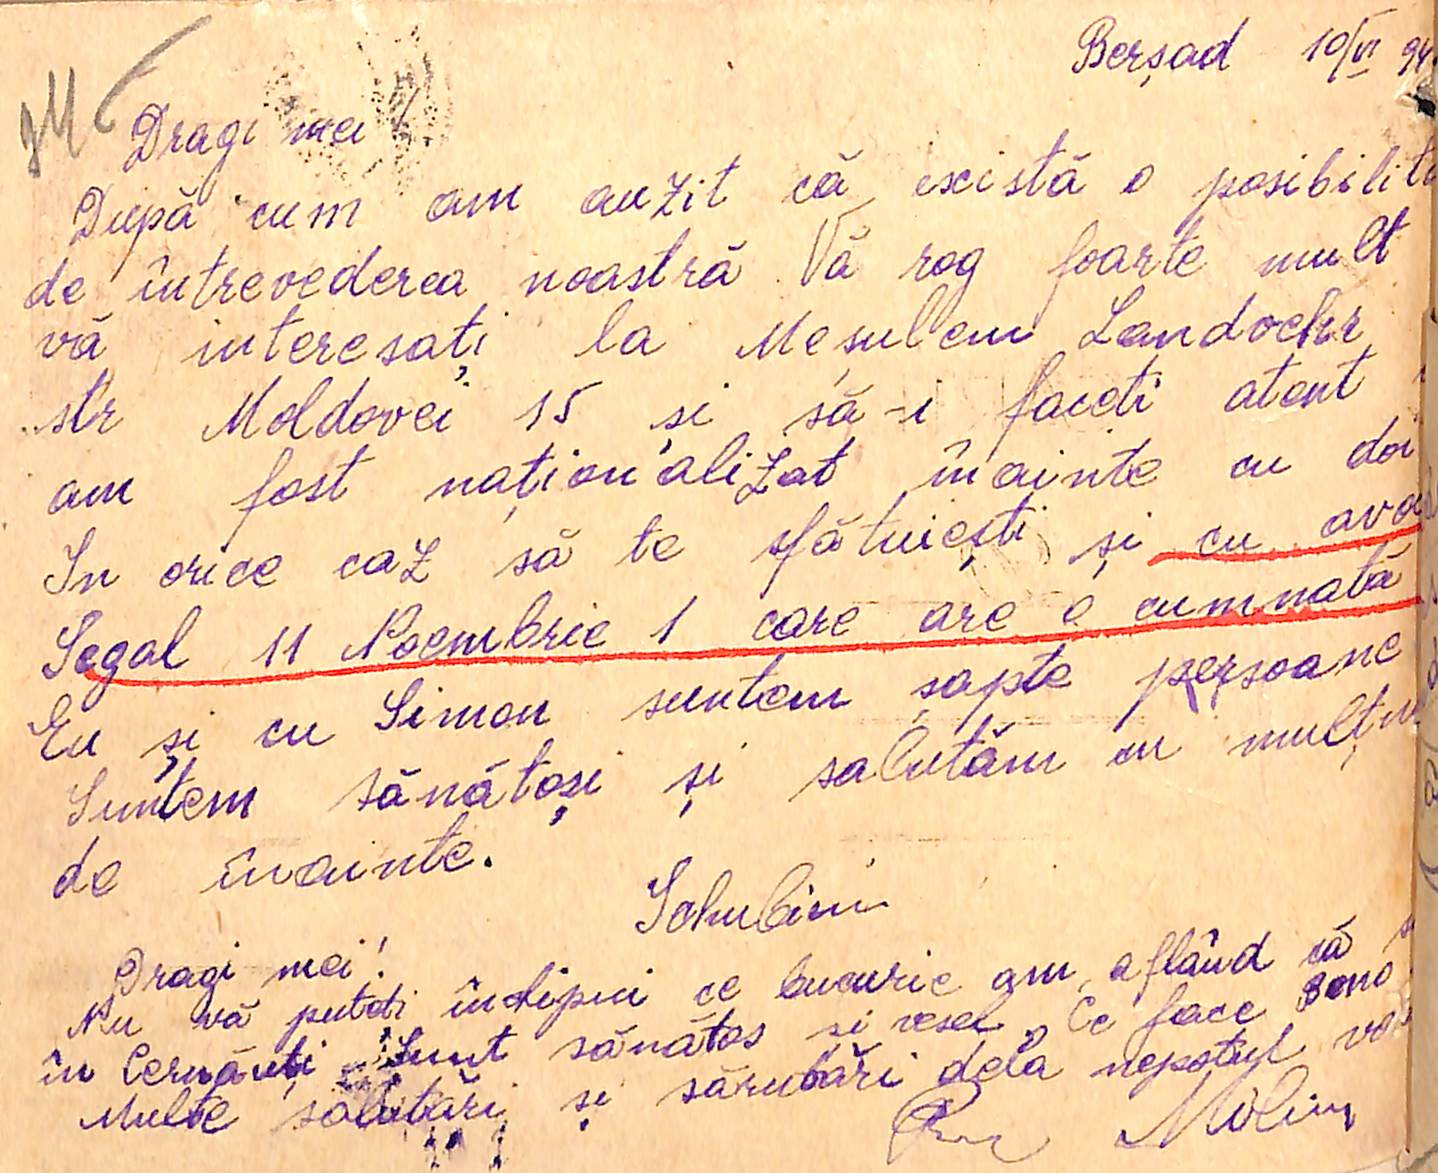 Berșad 10/VI 94
Dragi mei!
După cum am auzit că există o posibilita
de întrevederea noastră Vă rog foarte mult
vă interesați la Meșulem Landvehr
str Moldovei 15 și să-i faceti atent
am fost național'alizat înainte cu doi
In orice caz să te sfătuiești și cu avo
Segal 11 Noembrie 1 care are o cumnată
Eu și cu Simon suntem șapte persoane
Suntem sănătoși și salutăm cu mulțu
de înainte.
Dragi mei!
Nu vă puteti închipui ce bucurie am aflând că
în Cernăuți Sunt sănătos și vesel. Ce face Beno
Multe salutări și sărutări dela nepotul vo